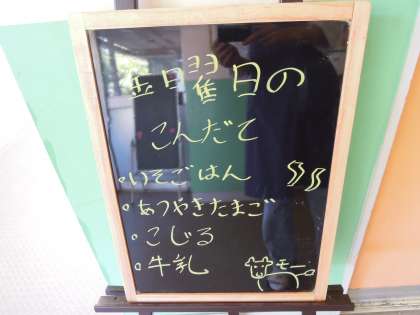 金曜日の
こんだて
・いそごはん
・あつやきたまご
・こじる
・牛乳
モー